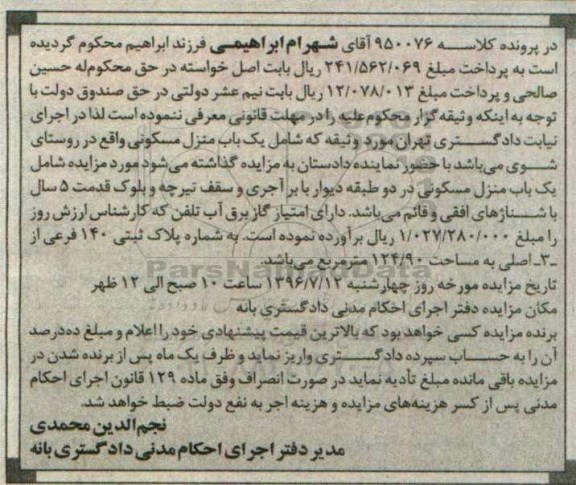 در پرونده کلاسه ۹۵۰۰۷۶ آقای شهرام ابراهیمی فرزند ابراهیم محکوم گردیده
است به پرداخت مبلغ ۲۴۱/۵۶۲/۰۶۹ ریال بابت اصل خواسته در حق محکوم‌له حسین
صالحی و پرداخت مبلغ ۱۲/۰۷۸/۰۱۳ ریال بابت نیم عشر دولتی در حق صندوق دولت با
توجه به اینکه وثیقه‌گزار محکوم‌علیه را در مهلت قانونی معرفی ننموده است لذا در اجرای
نیابت دادگستری تهران مورد وثیقه که شامل یک باب منزل مسکونی واقع در روستای
شوی می‌باشد با حضور نماینده دادستان به مزایده گذاشته می‌شود مورد مزایده شامل
یک باب منزل مسکونی در دو طبقه دیوار با بر آجری و سقف تیرچه و بلوک قدمت ۵ سال
با شناژهای افقی و قائم می‌باشد. دارای امتیاز گاز برق آب تلفن که کارشناس ارزش روز
را مبلغ ۱/۰۲۷/۲۸۰/۰۰۰ ریال برآورده نموده است. به شماره پلاک ثبتی ۱۴۰ فرعی از
ـ۳ـ اصلی به مساحت ۱۲۴/۹۰ مترمربع می‌باشد.
ParsNamadData
تاریخ مزایده مورخه روز چهارشنبه ۱۳۹۶/۷/۱۲ ساعت ۱۰ صبح الی ۱۲ ظهر
مکان مزایده دفتر اجرای احکام مدنی دادگستری بانه
برنده مزایده کسی خواهد بود که بالاترین قیمت پیشنهادی خود را اعلام و مبلغ ده‌درصد
آن را به حساب سپرده دادگستری واریز نماید و ظرف یک ماه پس از برنده شدن در
مزایده باقی مانده مبلغ تأدیه نماید در صورت انصراف وفق ماده ۱۲۹ قانون اجرای احکام
مدنی پس از کسر هزینه‌های مزایده و هزینه اجر به نفع دولت ضبط خواهد شد.
نجم‌الدین محمدی
مدیر دفتر اجرای احکام مدنی دادگستری بانه